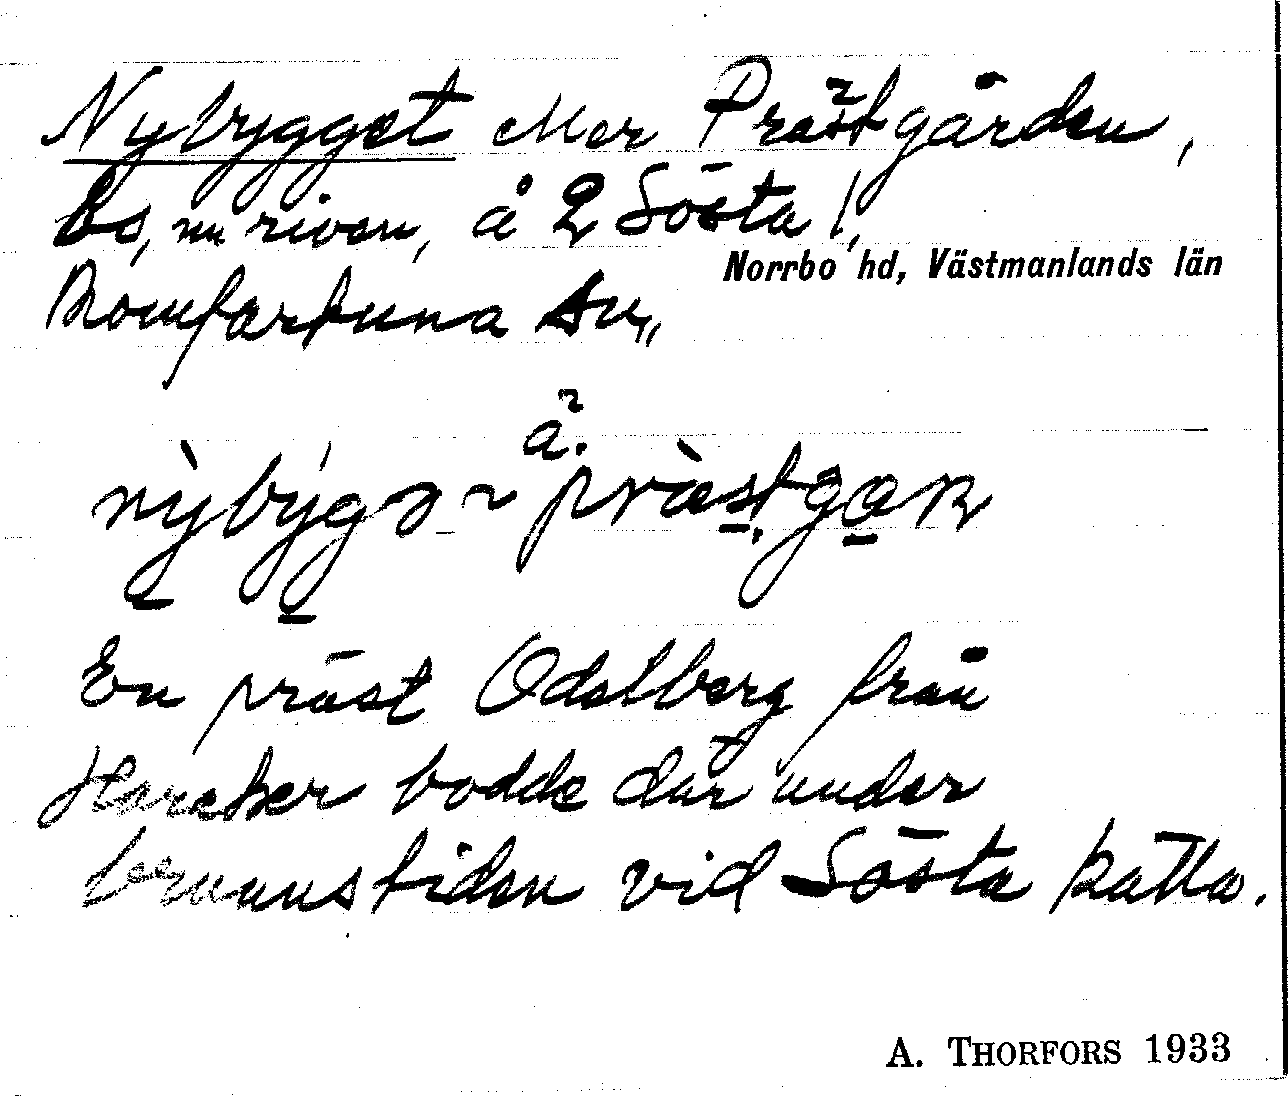 Nybygget eller Prästgården,
bs, nu riven, å 2 Sösta /,
Norrbo hd, Västmanlands län
Romfartuna sn,,
nỳbýgə ~ pràstgaɳ
En präst Odelberg från
Haraker bodde där under
brunnstiden vid Sösta källa.
A. THORFORS 1933